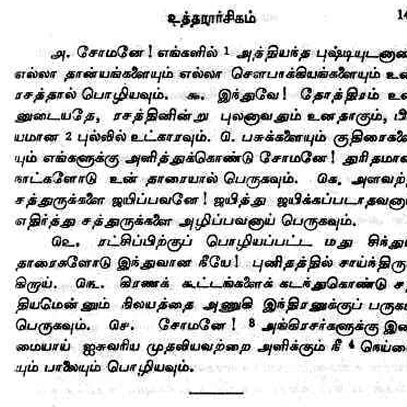 உத்தரார்சிகம் 14
௮. சோமனே! எங்களில் 1 அத்தியந்த புஷ்டியுடனான
எல்லா தான்யங்களையும் எல்லா சௌபாக்கியங்களையும் உன
ரசத்தால் பொழியவும். ௯. இந்துவே! தோத்திரம் உன
னுடையதே, ரசத்தினின்று புலனாவதும் உனதாகும், பி
யமான 2 புல்லில் உட்காரவும். ௰. பசுக்களையும் குதிரைகளை
யும் எங்களுக்கு அளித்துக்கொண்டு சோமனே! துரிதமான
நாட்களோடு உன் தாரையால் பெருகவும். ௧௧. அளவற்ற
சத்துருக்களை ஜயிப்பவனே! ஜயித்து ஜயிக்கப்படாதவனா
எதிர்த்து சத்துருக்களை அழிப்பவனாய் பெருகவும்.
௧௨. ரட்சிப்பிற்குப் பொழியப்பட்ட மது சிந்தும்
தாரைகளோடு இந்துவான நீயே! புனிதத்தில் சாய்ந்திருக்
கிறாய். ௧௩. கிரணக் கூட்டங்களைக் கடந்துகொண்டு ச
தியமென்னும் நிலயத்தை அணுகி இந்திரனுக்குப் பருக
பெருகவும். ௧௪. சோமனே! 3 அங்கிரசர்களுக்கு இனி
மையாய் ஐசுவரிய முதலியவற்றை அளிக்கும் நீ 4 நெய்யை
யும் பாலையும் பொழியவும்.